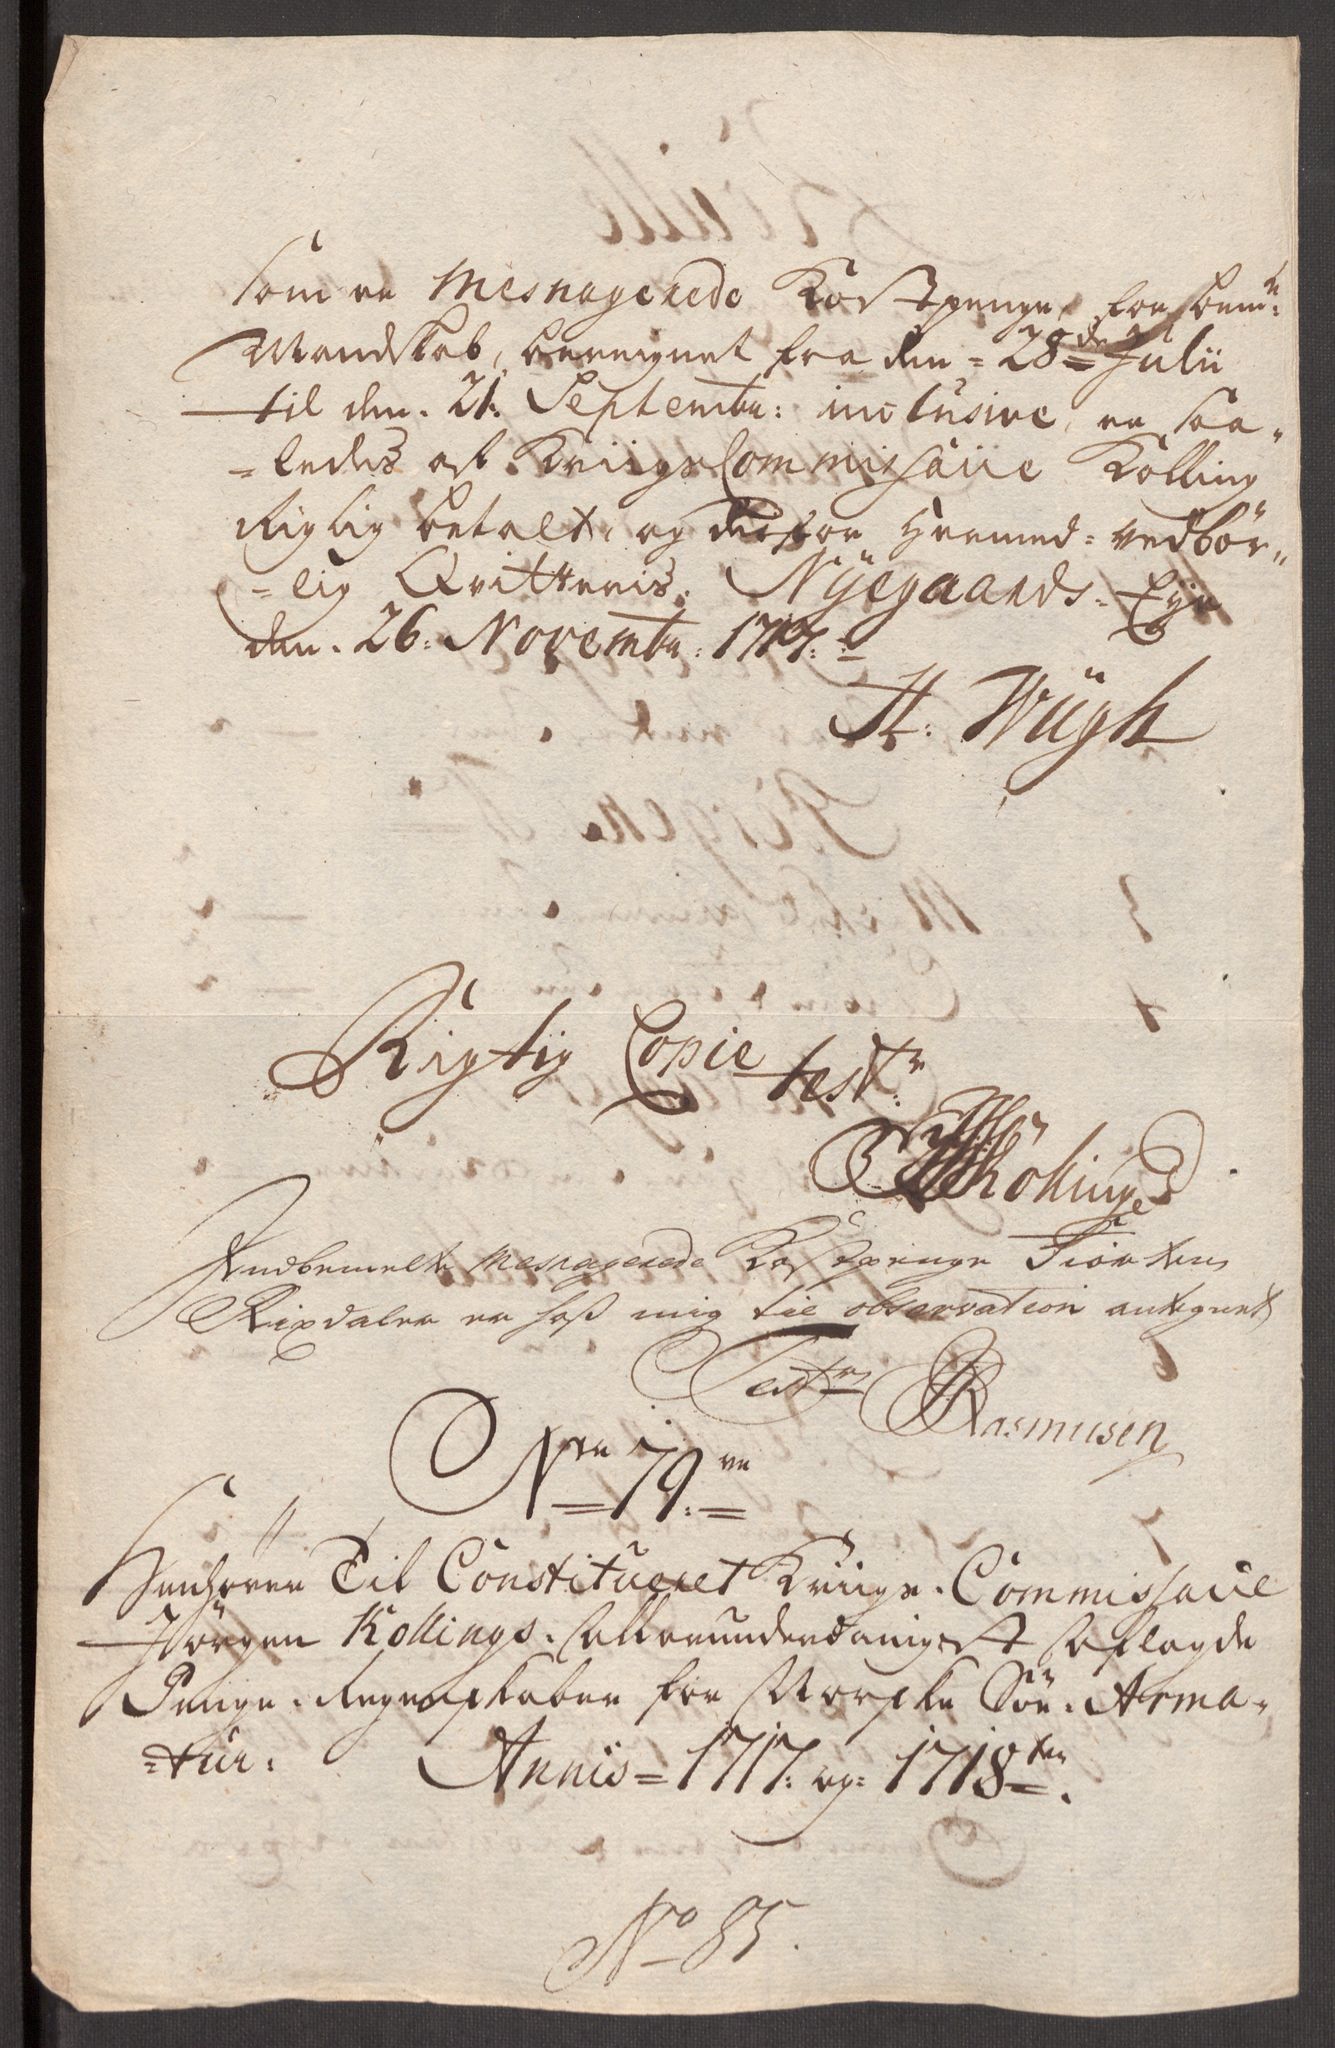 Som er Mesnagerede Kostpenge, for bem:te
Mandskab, bereignet fra den 28de Julii
til den 21: Septembr: inclusive, er saa-
-ledes af KriigsCommissarie Kolling
Rigtig betalt, og derfor hermed vedbör-
-lig Qvitteris. Nÿegaards Eÿe
den. 26: Novembr: 1717:
H: Wügh
Rigtig Copie test:r
Kolling
Indbemelte Mesnagerede Kostpenge Fiorten
Rixdaler er hoss mig til observation antegnet
Test:s Rasmusen
Nr 79:
Henhörer Til Constitueret Kriigs-Commissarie
Jörgen Kollings allerunderdanigst aflagde
Penge-Regnskaber for Norske Söe-Arma-
-tur: Annis 1717: og 1718:ten
No 85.